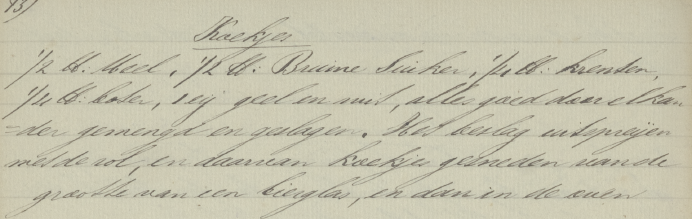 13)
Koekjes
1/2 ℔. Meel, 1/2 ℔. Bruine Suiker, 1/4 ℔. krenten,
1/4 ℔. boter, 1 eij geel en wit, alles goed door elkan
=der gemengd en geslagen. Het beslag uitspreijen
met de rol, en daarvan koekjes gesneden van de
grootte van een bierglas, en dan in de oven